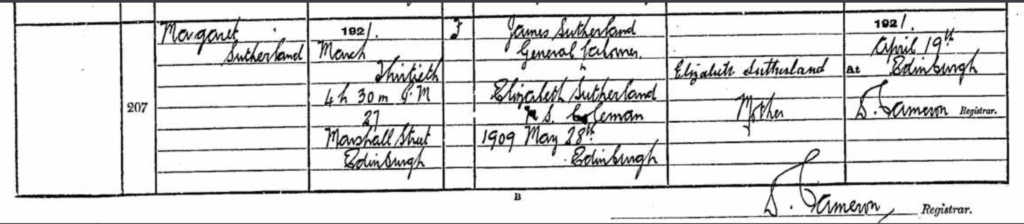 207
Margaret
Sutherland
1921.
March
Thirtieth
4h 30m P.M
27
Marshall Street
Edinburgh
F
James Sutherland
General Labourer
Elizabeth Sutherland
M.S. Coleman
1909 May 28th
Edinburgh
Elizabeth Sutherland
Mother
1921.
April 19th
At Edinburgh
D. Cameron Registrar.
B
D. Cameron, Registrar.